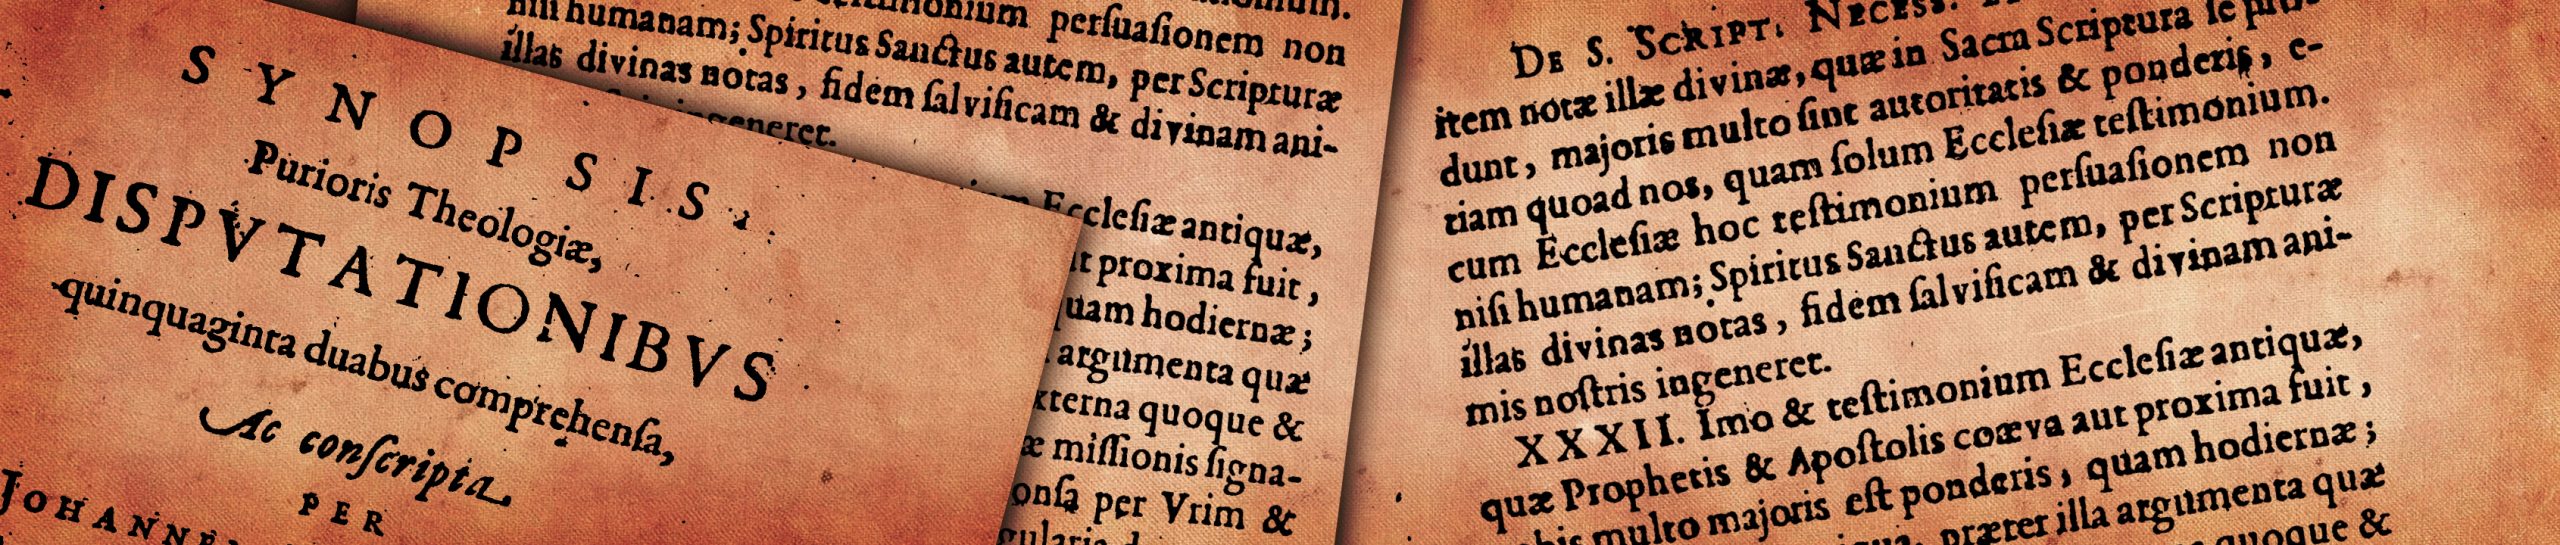 SYNOPSIS
Purioris Theologiæ,
DISPVTATIONIBVS
quinquaginta duabus comprehenſa,
Ac conſcripta
PER
niſi humanam; Spiritus Sanctus autem, per Scripturæ
illas divinas notas, fidem ſalvificam & divinam ani-
ingeneret.
Eccleſiæ antiquæ,
proxima fuit,
quam hodiernæ;
argumenta quæ
quoque &
miſſionis ſigna-
per Vrim &
perſuaſionem non
DE S. SCRIPT. NECESS.
item notæ illæ divinæ, quæ in Sacra Scriptura ſe
dunt, majoris multo ſint autoritatis & ponderis, e-
tiam quoad nos, quam ſolum Eccleſiæ teſtimonium.
cum Eccleſiæ hoc teſtimonium perſuaſionem non
niſi humanam; Spiritus Sanctus autem, per Scripturæ
illas divinas notas, fidem ſalvificam & divinam ani-
mis noſtris ingeneret.
XXXII. Imo & teſtimonium Eccleſiæ antiquæ,
quæ Prophetis & Apoſtolis coæva aut proxima fuit,
multo majoris eſt ponderis, quam hodiernæ;
præter illa argumenta quæ
quoque &